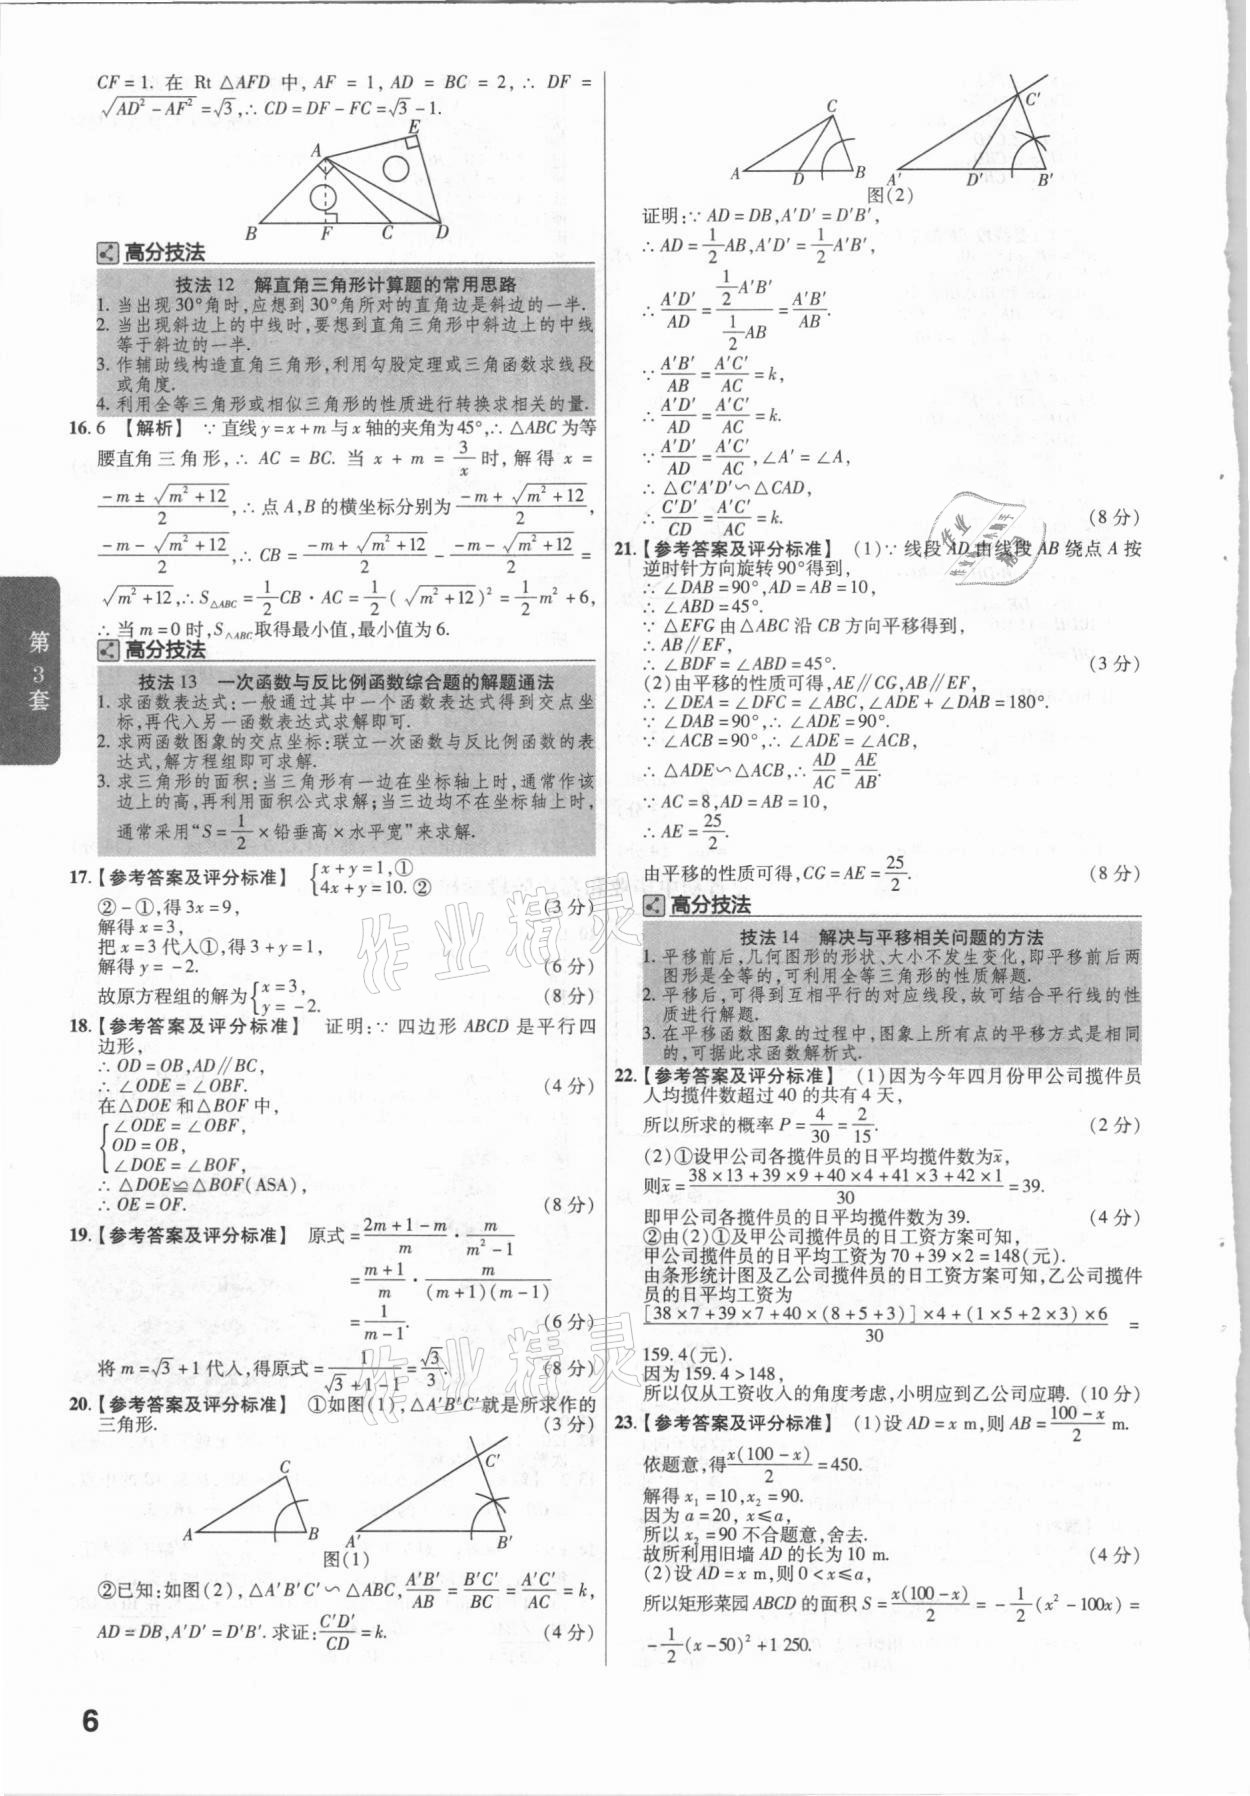 CF=1. 在 Rt △AFD 中, AF = 1, AD = BC = 2, ∴ DF =
√(AD²-AF²)=√3, ∴ CD=DF-FC=√3-1.
A
E
B
F
C
D
高分技法
技法12 解直角三角形计算题的常用思路
1. 当出现30°角时,应想到30°角所对的直角边是斜边的一半.
2. 当出现斜边上的中线时,要想到直角三角形中斜边上的中线
等于斜边的一半.
3. 作辅助线构造直角三角形,利用勾股定理或三角函数求线段
或角度.
4. 利用全等三角形或相似三角形的性质进行转换求相关的量.
16. 6 【解析】 ∵直线y=x+m与x轴的夹角为45°,∴△ABC为等
腰直角三角形,∴ AC = BC. 当 x + m = 3/x 时,解得 x =
(-m±√(m²+12))/2,∴点A,B的横坐标分别为(-m+√(m²+12))/2,
(-m-√(m²+12))/2,∴ CB = (-m+√(m²+12))/2 - (-m-√(m²+12))/2 =
√(m²+12),∴S△ABC=1/2 CB·AC=1/2(√(m²+12))²=1/2 m²+6,
∴当m=0时,S△ABC取得最小值,最小值为6.
高分技法
技法13 一次函数与反比例函数综合题的解题通法
1. 求函数表达式:一般通过其中一个函数表达式得到交点坐
标,再代入另一函数表达式求解即可.
2. 求两函数图象的交点坐标:联立一次函数与反比例函数的表
达式,解方程组即可求解.
3. 求三角形的面积:当三角形有一边在坐标轴上时,通常作该
边上的高,再利用面积公式求解;当三边均不在坐标轴上时,
通常采用“S=1/2×铅垂高×水平宽”来求解.
17.【参考答案及评分标准】 {x+y=1,①
4x+y=10. ②
②-①,得3x=9, (3分)
解得x=3,
把x=3代入①,得3+y=1,
解得y=-2. (6分)
故原方程组的解为{x=3,
y=-2. (8分)
18.【参考答案及评分标准】 证明:∵四边形ABCD是平行四
边形,
∴OD=OB,AD∥BC,
∴∠ODE=∠OBF. (4分)
在△DOE和△BOF中,
{∠ODE=∠OBF,
OD=OB,
∠DOE=∠BOF,
∴△DOE≌△BOF(ASA),
∴OE=OF. (8分)
19.【参考答案及评分标准】 原式=(2m+1-m)/m·m/(m²-1)
=(m+1)/m·m/((m+1)(m-1))
=1/(m-1). (6分)
将m=√3+1代入,得原式=1/(√3+1-1)=√3/3. (8分)
20.【参考答案及评分标准】 ①如图(1),△A'B'C'就是所求作的
三角形. (3分)
C
A
B
C'
A'
B'
图(1)
②已知:如图(2),△A'B'C'∽△ABC,A'B'/AB=B'C'/BC=A'C'/AC=k,
AD=DB,A'D'=D'B'.求证:C'D'/CD=k. (4分)
6
第3套
C
A
D
B
C'
A'
D'
B'
图(2)
证明:∵AD=DB,A'D'=D'B',
∴AD=1/2AB,A'D'=1/2A'B',
∴A'D'/AD=(1/2A'B')/(1/2AB)=A'B'/AB.
∵A'B'/AB=A'C'/AC=k,
∴A'D'/AD=A'C'/AC=k.
∵A'D'/AD=A'C'/AC,∠A'=∠A,
∴△C'A'D'∽△CAD,
∴C'D'/CD=A'C'/AC=k. (8分)
21.【参考答案及评分标准】 (1)∵线段AD由线段AB绕点A按
逆时针方向旋转90°得到,
∴∠DAB=90°,AD=AB=10,
∴∠ABD=45°.
∵△EFG由△ABC沿CB方向平移得到,
∴AB∥EF,
∴∠BDF=∠ABD=45°. (3分)
(2)由平移的性质可得,AE∥CG,AB∥EF,
∴∠DEA=∠DFC=∠ABC,∠ADE+∠DAB=180°.
∵∠DAB=90°,∴∠ADE=90°.
∵∠ACB=90°,∴∠ADE=∠ACB,
∴△ADE∽△ACB,∴AD/AC=AE/AB.
∵AC=8,AD=AB=10,
∴AE=25/2.
由平移的性质可得,CG=AE=25/2. (8分)
高分技法
技法14 解决与平移相关问题的方法
1. 平移前后,几何图形的形状、大小不发生变化,即平移前后两
图形是全等的,可利用全等三角形的性质解题.
2. 平移后,可得到互相平行的对应线段,故可结合平行线的性
质进行解题.
3. 在平移函数图象的过程中,图象上所有点的平移方式是相同
的,可据此求函数解析式.
22.【参考答案及评分标准】 (1)因为今年四月份甲公司揽件员
人均揽件数超过40的共有4天,
所以所求的概率P=4/30=2/15. (2分)
(2)①设甲公司各揽件员的日平均揽件数为x̄,
则x̄=(38×13+39×9+40×4+41×3+42×1)/30=39.
即甲公司各揽件员的日平均揽件数为39. (4分)
②由(2)①及甲公司揽件员的日工资方案可知,
甲公司揽件员的日平均工资为70+39×2=148(元).
由条形统计图及乙公司揽件员的日工资方案可知,乙公司揽件
员的日平均工资为
([38×7+39×7+40×(8+5+3)]×4+(1×5+2×3)×6)/30 =
159.4(元).
因为159.4>148,
所以仅从工资收入的角度考虑,小明应到乙公司应聘. (10分)
23.【参考答案及评分标准】 (1)设AD=x m,则AB=(100-x)/2 m.
依题意,得x(100-x)/2=450.
解得x₁=10,x₂=90.
因为a=20,x≤a,
所以x₂=90不合题意,舍去.
故所利用旧墙AD的长为10 m. (4分)
(2)设AD=x m,则0<x≤a,
所以矩形菜园ABCD的面积S=x(100-x)/2=-1/2(x²-100x)=
-1/2(x-50)²+1 250.
作业精灵
作业精灵